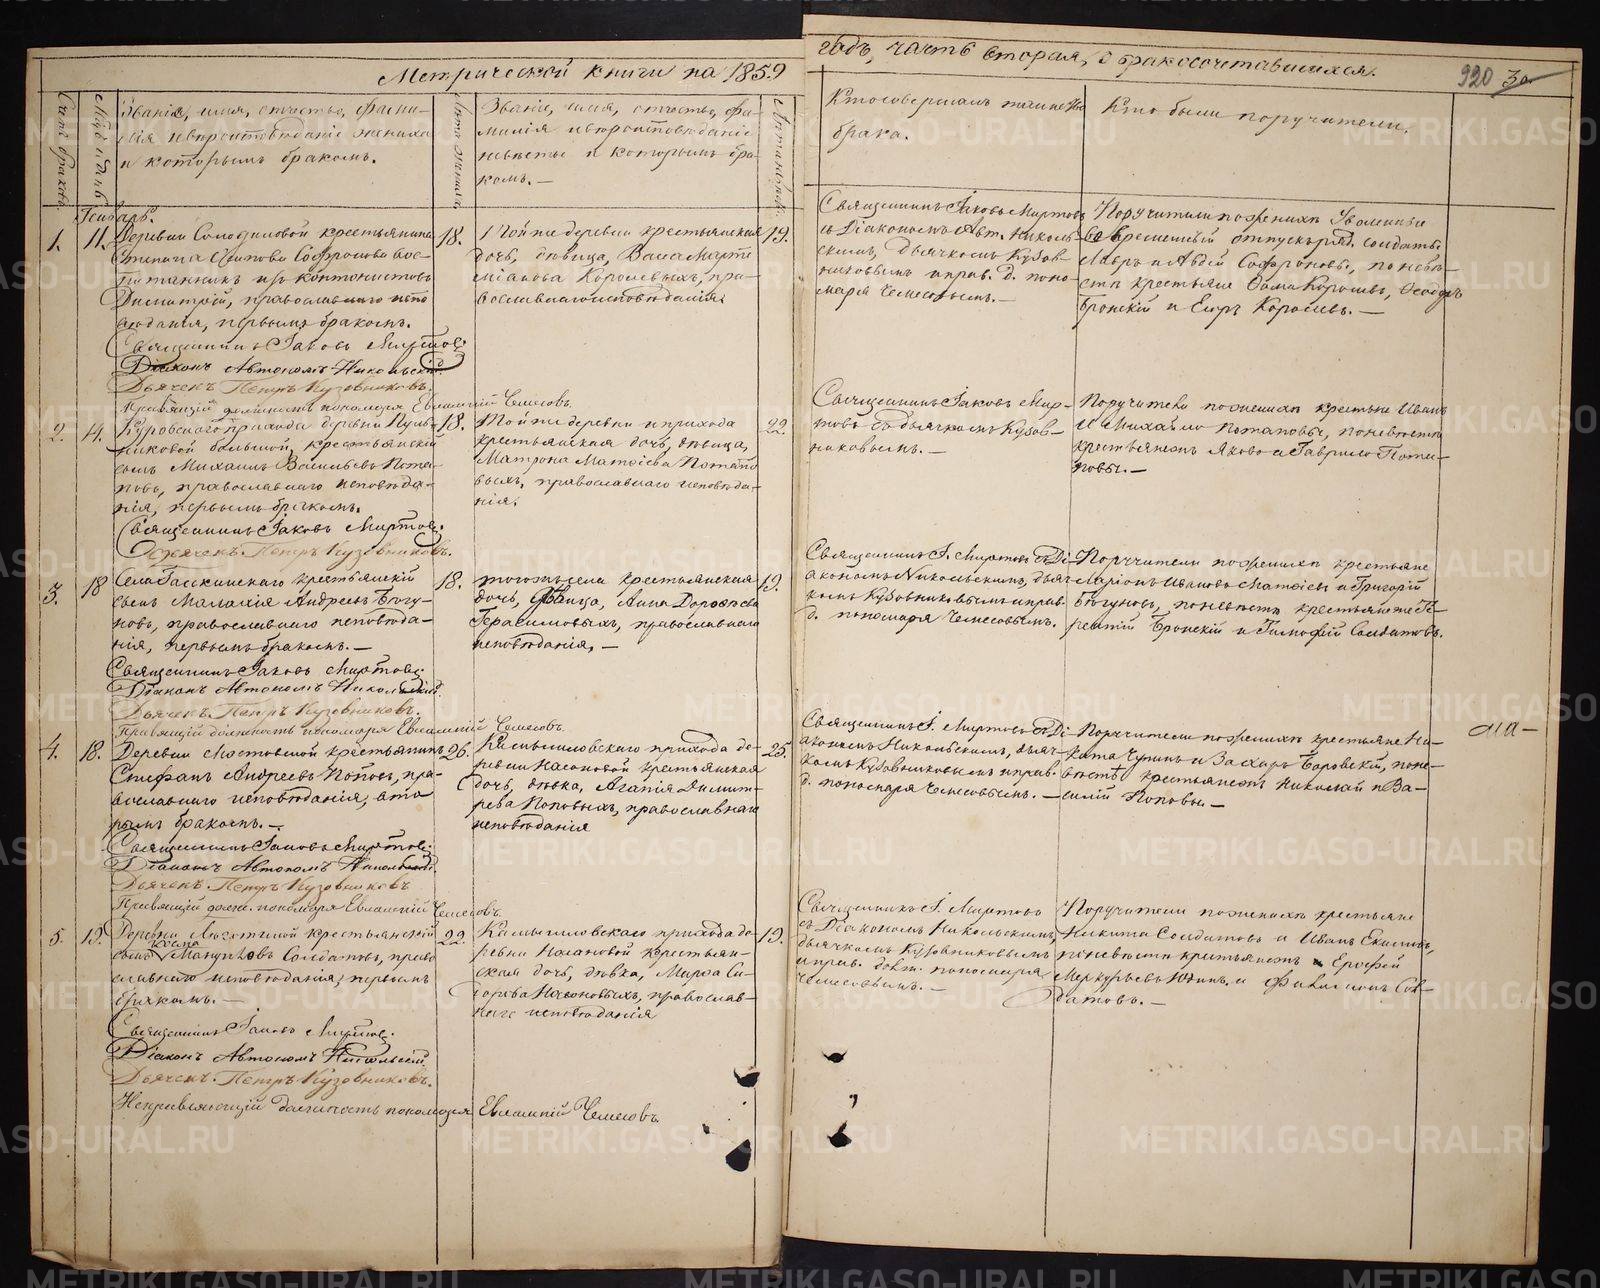 Метрической книги на 1859
годъ, часть вторая, о бракосочетавшихся.
920 30
Счетъ браковъ.
Званіе, имя, отчество, фами-
лія и вѣроисповѣданіе жениха
и которымъ бракомъ.
Лѣта жениха
Званіе, имя, отчество, фа-
милія и вѣроисповѣданіе
невѣсты и которымъ бра-
комъ. —
Кто совершалъ таинство
брака.
Кто были поручители.
Генварь.
1.
11.
Деревни крестьянина
вос-
питанникъ изъ кантонистовъ
Димитрій, православнаго испо
вѣданія, первымъ бракомъ.
Священникъ Іаковъ Миртовъ
Діаконъ Автономъ Никольскій
Дьячекъ Петръ Кузовниковъ.
Правящій должность пономаря Евлампій Чемесовъ.
18.
Той же деревни крестьянская
дочь, дѣвица, Васса Марти
міанова Королевыхъ, пра-
вославнаго исповѣданія.
19.
Священникъ Іаковъ Миртовъ
съ Діакономъ Авт. Николь-
скимъ, дьячкомъ Кузов-
никовымъ и прав. д. поно-
маря Чемесовымъ. —
Поручители по женихѣ Уволенные
во временный отпускъ солдаты
Лавръ и Авдей Софроновы, по невѣ-
стѣ крестьяне Фома Королевъ, Ѳеодоръ
Бронскій и Егоръ Королевъ. —
2.
14.
Куровскаго прихода деревни Кузов-
никовой большой, крестьянскій
сынъ Михаилъ Васильевъ Пота-
повъ, православнаго исповѣда-
нія, первымъ бракомъ.
Священникъ Іаковъ Миртовъ.
Дьячекъ Петръ Кузовниковъ.
18.
Той же деревни и прихода
крестьянская дочь, дѣвица,
Матрона Матѳіева Потапо
выхъ, православнаго исповѣда-
нія.
22.
Священникъ Іаковъ Мир-
товъ съ дьячкомъ Кузов-
никовымъ. —
Поручители по женихѣ крестьяне Иванъ
и Михайло Потаповы, по невѣстѣ
крестьянемъ Яковъ и Гаврило Пота-
повы. —
3.
18
Села крестьянскій
сынъ Малахія Андреевъ Богу-
новъ, православнаго исповѣда-
нія, первымъ бракомъ. —
Священникъ Іаковъ Миртовъ
Діаконъ Автономъ Никольскій.
Дьячекъ Петръ Кузовниковъ.
Правящій должность пономаря Евлампій Чемесовъ.
18.
того же села крестьянская
дочь, дѣвица, Анна Дороѳеева
Герасимовыхъ, православнаго
исповѣданія, —
19.
Священникъ І. Миртовъ съ Ді-
акономъ Никольскимъ, дьяч-
комъ Кузовниковымъ и прав.
д. пономаря Чемесовымъ.
Поручители по женихѣ крестьяне
Маріонъ Ивановъ Матѳіевъ и Григорій
Богуновъ, по невѣстѣ крестьяне Те-
рентій Бронскій и Тимофей Солдатовъ.
4.
18.
Деревни Мостовской крестьянинъ
Стефанъ Андреевъ Поповъ, пра-
вославнаго исповѣданія, вто-
рымъ бракомъ. —
Священникъ Іаковъ Миртовъ.
Діаконъ Автономъ Никольскій.
Дьячекъ Петръ Кузовниковъ
Правящій долж. пономаря Евлампій Чемесовъ.
26.
Камышловскаго прихода де-
ревни Насоновой крестьянская
дочь, дѣвка, Агапія Димит-
рева Поповыхъ, православнаго
исповѣданія
25.
Священникъ І. Миртовъ съ Ді-
акономъ Никольскимъ, дьяч-
комъ Кузовниковымъ и прав.
д. пономаря Чемесовымъ. —
Поручители по женихѣ крестьяне Ни-
кита Чупинъ и Захаръ Боровскій, по не-
вѣстѣ крестьянемъ Николай и Ва-
силій Поповы. —
5.
19.
Деревни крестьянскій
сынъ Козма Солдатовъ, право
славнаго исповѣданія, первымъ
бракомъ. —
Священникъ Іаковъ Миртовъ.
Діаконъ Автономъ Никольскій.
Дьячекъ Петръ Кузовниковъ.
должность пономаря Евлампій Чемесовъ.
22.
Камышловскаго прихода де-
ревни Насоновой крестьян-
ская дочь, дѣвка, Марѳа Си-
дорова Насоновыхъ, православ-
наго исповѣданія
19.
Священникъ І. Миртовъ
съ Діакономъ Никольскимъ,
дьячкомъ Кузовниковымъ
и прав. долж. пономаря
Чемесовымъ. —
Поручители по женихѣ крестьяне
Никита Солдатовъ и Иванъ Екимовъ,
по невѣстѣ крестьянемъ Ерофей
Меркурьевъ и Филимонъ Сол-
датовъ. —
METRIKI.GASO-URAL.RU